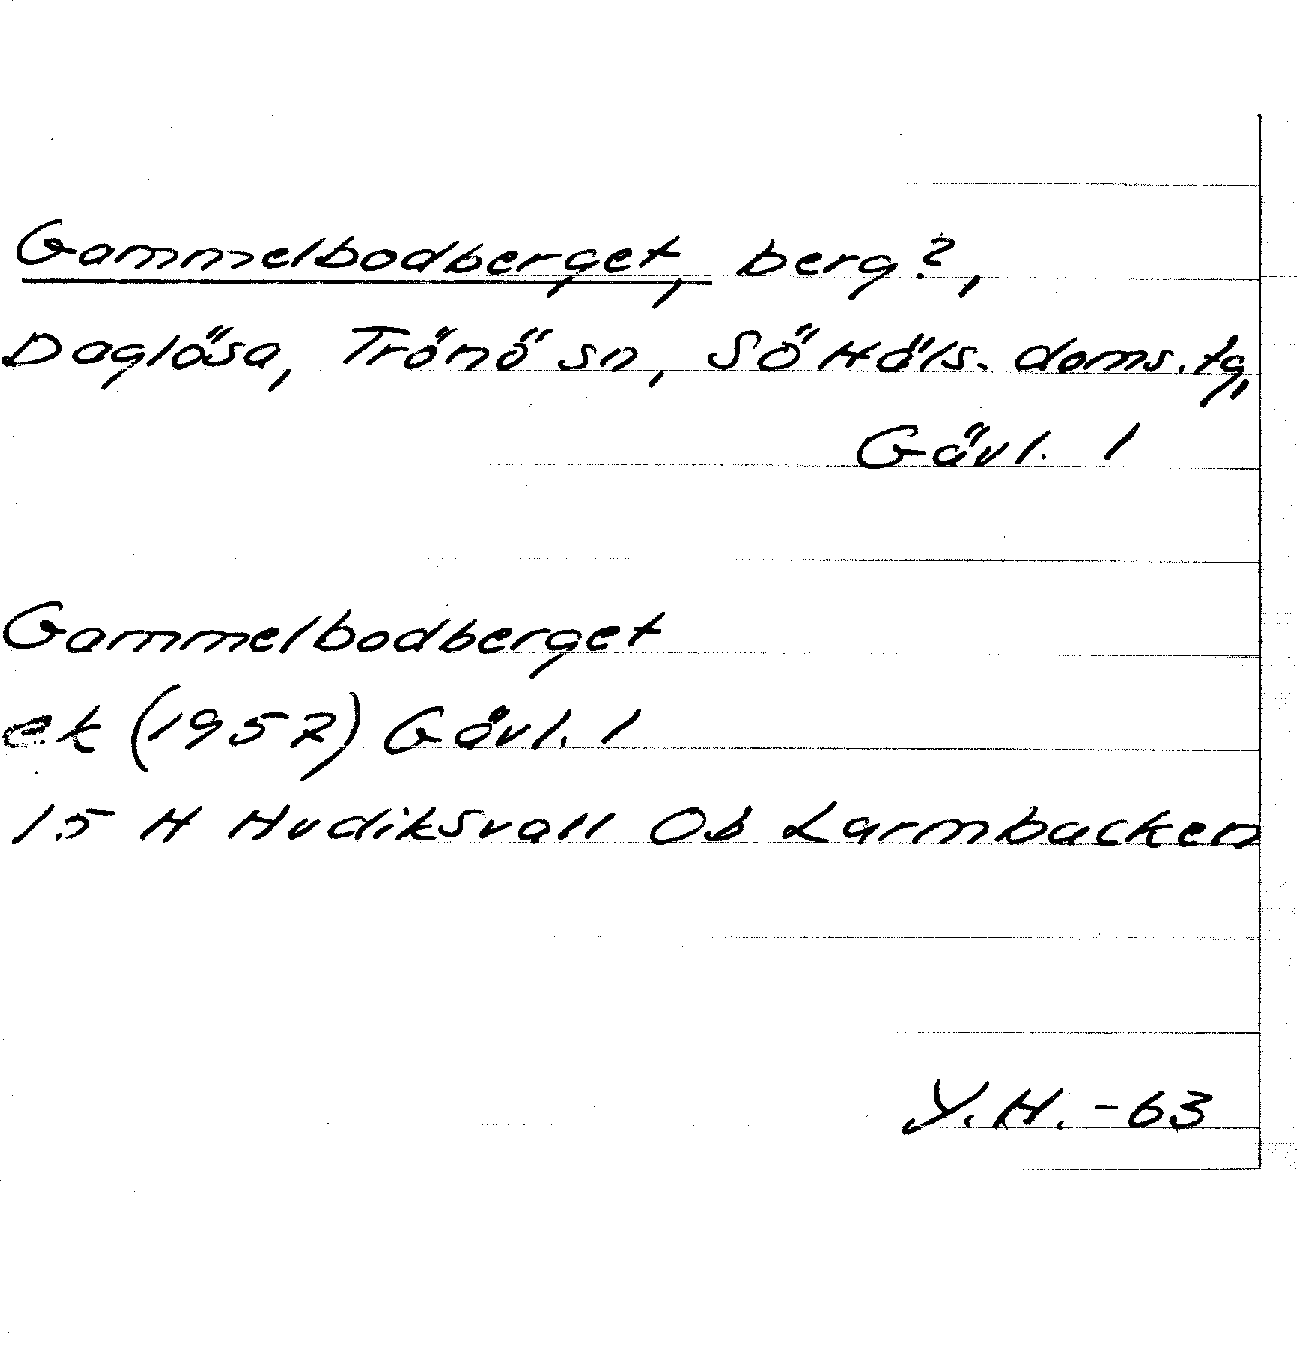 Gammelbodberget, berg?,
Daglösa, Trönö sn, Sö Häls. doms. tg,
Gävl. l
Gammelbodberget
ek (1957) Gävl. l
15 H Hudiksvall Ob Larmbacken
Y.H. -63